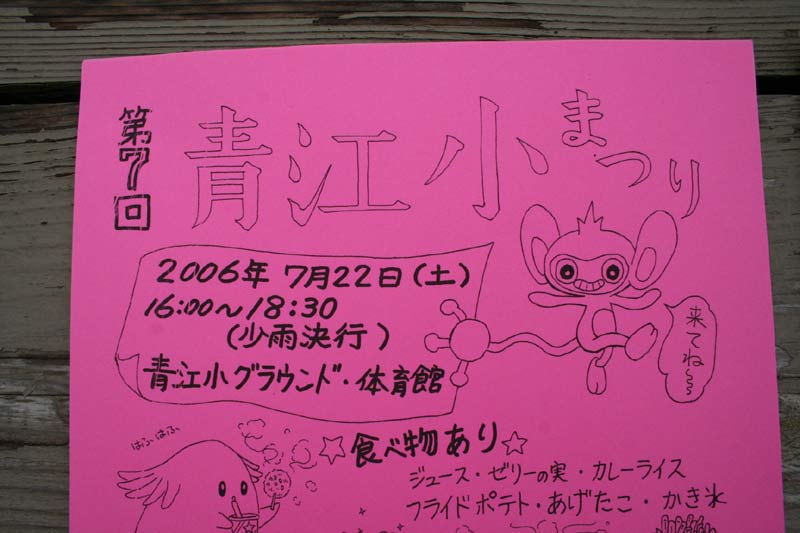 第7回
青江小まつり
2006年 7月22日(土)
16:00～18:30
(少雨決行)
青江小グラウンド・体育館
来てね～
☆食べ物あり☆
ジュース・ゼリーの実・カレーライス
フライドポテト・あげたこ・かき氷
はふはふ